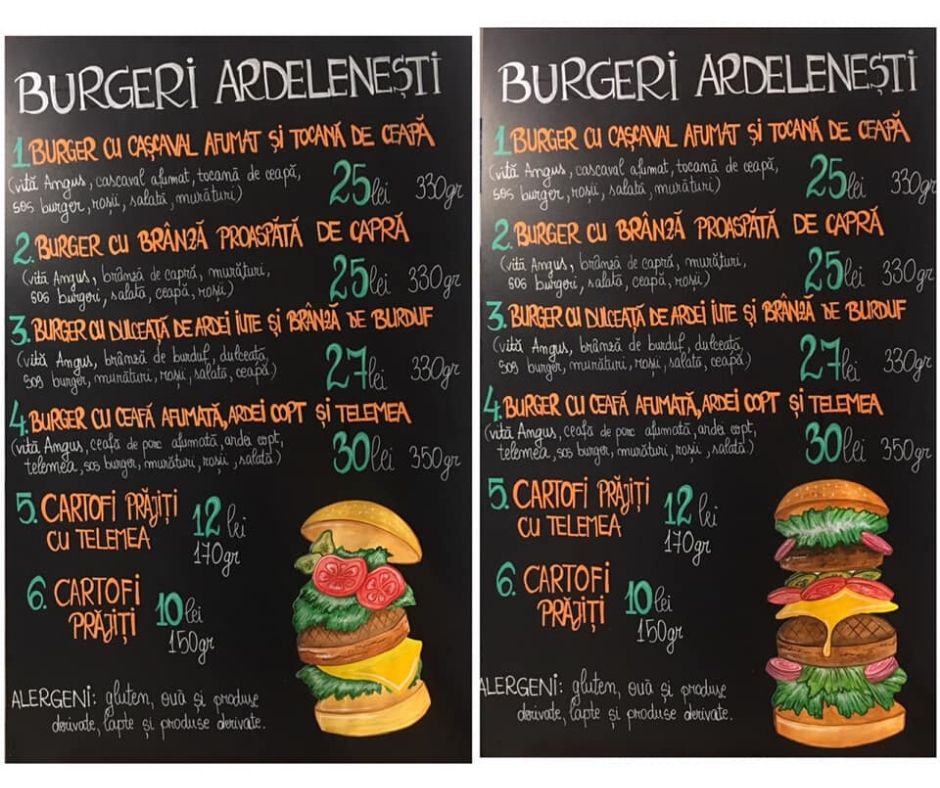 BURGERI ARDELENEȘTI
1. BURGER CU CAȘCAVAL AFUMAT ȘI TOCANĂ DE CEAPĂ
(vită Angus, cascaval afumat, tocană de ceapă,
sos burger, roșii, salată, murături)
25 lei 330gr
2. BURGER CU BRÂNZĂ PROASPĂTĂ DE CAPRĂ
(vită Angus, brânză de capră, murături,
sos burgeri, salată, ceapă, roșii)
25 lei 330gr
3. BURGER CU DULCEAȚĂ DE ARDEI IUTE ȘI BRÂNZĂ DE BURDUF
(vită Angus, brânză de burduf, dulceață,
sos burger, murături, roșii, salată, ceapă)
27 lei 330gr
4. BURGER CU CEAFĂ AFUMATĂ, ARDEI COPT ȘI TELEMEA
(vită Angus, ceafă de porc afumată, ardei copt,
telemea, sos burger, murături, roșii, salată)
30 lei 350gr
5. CARTOFI PRĂJIȚI
CU TELEMEA
12 lei
170gr
6. CARTOFI
PRĂJIȚI
10 lei
150gr
ALERGENI: gluten, ouă și produse
derivate, lapte și produse derivate.
BURGERI ARDELENEȘTI
1. BURGER CU CAȘCAVAL AFUMAT ȘI TOCANĂ DE CEAPĂ
(vită Angus, cascaval afumat, tocană de ceapă,
sos burger, roșii, salată, murături)
25 lei 330gr
2. BURGER CU BRÂNZĂ PROASPĂTĂ DE CAPRĂ
(vită Angus, brânză de capră, murături,
sos burgeri, salată, ceapă, roșii)
25 lei 330gr
3. BURGER CU DULCEAȚĂ DE ARDEI IUTE ȘI BRÂNZĂ DE BURDUF
(vită Angus, brânză de burduf, dulceață,
sos burger, murături, roșii, salată, ceapă)
27 lei 330gr
4. BURGER CU CEAFĂ AFUMATĂ, ARDEI COPT ȘI TELEMEA
(vită Angus, ceafă de porc afumată, ardei copt,
telemea, sos burger, murături, roșii, salată)
30 lei 350gr
5. CARTOFI PRĂJIȚI
CU TELEMEA
12 lei
170gr
6. CARTOFI
PRĂJIȚI
10 lei
150gr
ALERGENI: gluten, ouă și produse
derivate, lapte și produse derivate.